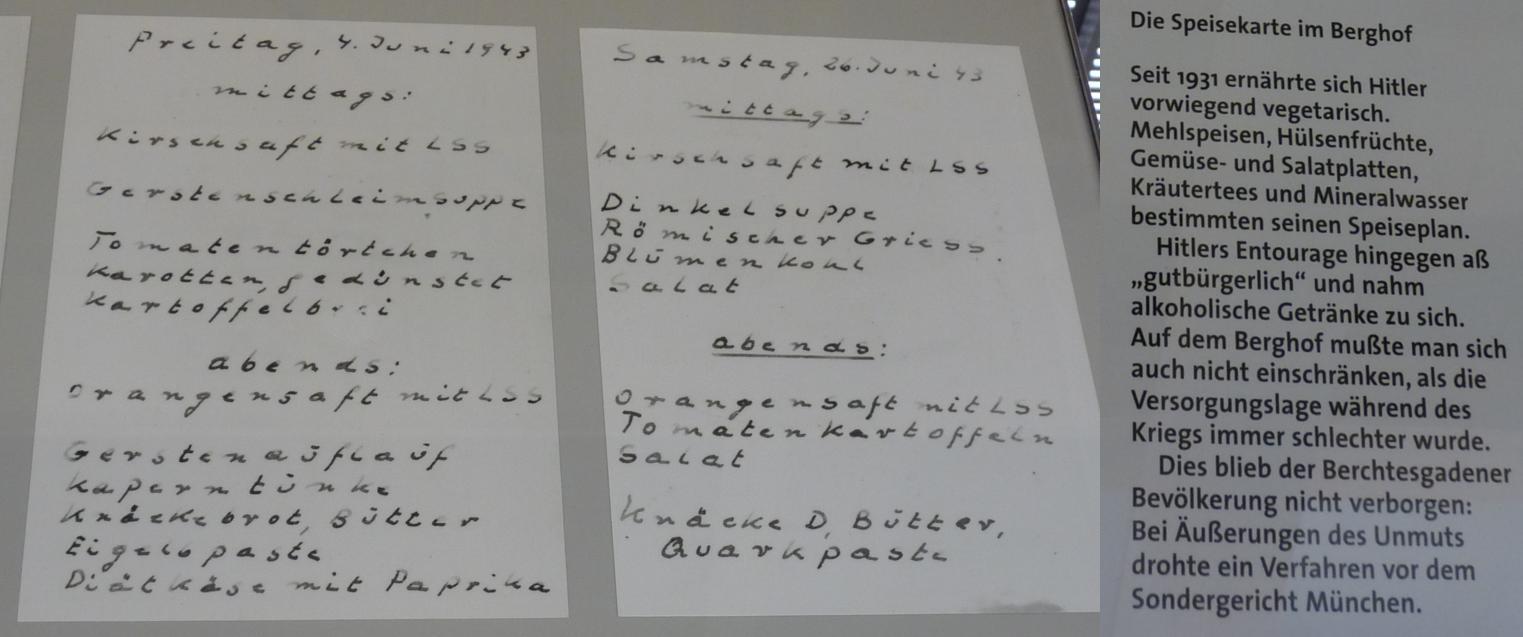 Freitag, 4. Juni 1943
mittags:
Kirschsaft mit LSS
Gerstenschleimsuppe
Tomatentörtchen
Karotten, gedünstet
Kartoffelbrei
abends:
Orangensaft mit LSS
Gerstenaūflaūf
Kaperntūnke
Knäckebrot, Būtter
Eigelbpaste
Diätkäse mit Paprika
Samstag, 26. Juni 43
mittags:
Kirschsaft mit LSS
Dinkelsuppe
Römischer Griess.
Blūmenkohl
Salat
abends:
Orangensaft mit LSS
Tomatenkartoffeln
Salat
Knäcke D, Būtter,
Quarkpaste
Die Speisekarte im Berghof
Seit 1931 ernährte sich Hitler
vorwiegend vegetarisch.
Mehlspeisen, Hülsenfrüchte,
Gemüse- und Salatplatten,
Kräutertees und Mineralwasser
bestimmten seinen Speiseplan.
Hitlers Entourage hingegen aß
„gutbürgerlich“ und nahm
alkoholische Getränke zu sich.
Auf dem Berghof mußte man sich
auch nicht einschränken, als die
Versorgungslage während des
Kriegs immer schlechter wurde.
Dies blieb der Berchtesgadener
Bevölkerung nicht verborgen:
Bei Äußerungen des Unmuts
drohte ein Verfahren vor dem
Sondergericht München.